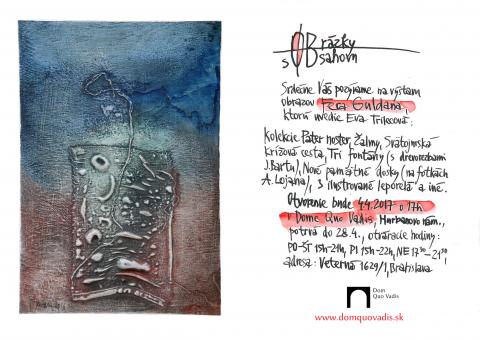 OBrázky
s OBsahom
Srdečne Vás pozývame na výstavu
obrazov Fera Guldana,
ktorú uvedie Eva Trilecová:
Kolekcie Pater noster, Žalmy, Svätojurská
krížová cesta, Tri Fontány (s drevorezbami
J. Bartu), Nové pamätné dosky (na fotkách
A. Lojana), 3 ilustrované leporelá a iné.
Otvorenie bude 4.4.2017 o 17h
v Dome Quo Vadis, Hurbanovo nám.,
potrvá do 28.4., otváracie hodiny:
PO-ŠT 15h-21h, PI 15h-22h, NE 17³⁰-21³⁰,
adresa: Veterná 1629/1, Bratislava
Dom
Quo Vadis
www.domquovadis.sk